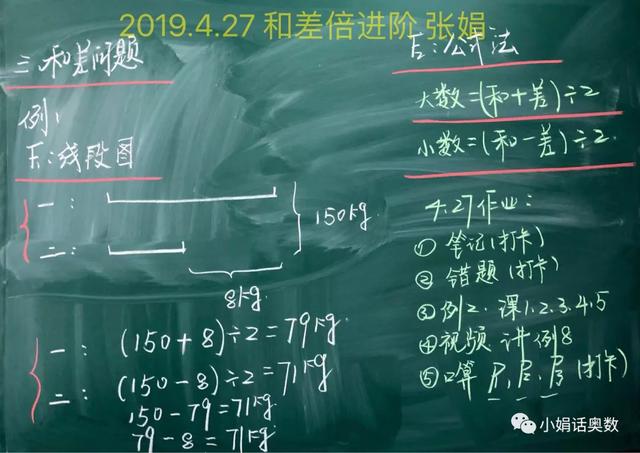 2019.4.27 和差倍进阶 张娟
三.和差问题
例1
F1:线段图
一:
二:
150kg.
8kg.
一: (150+8)÷2=79kg.
二: (150-8)÷2=71kg
150-79=71kg
79-8=71kg
F2:公式法
大数=(和+差)÷2
小数=(和-差)÷2.
4.27作业:
① 笔记(打卡)
② 错题(打卡)
③ 例2.课1.2.3.4.5
④ 视频 讲例8
⑤ 口算 (打卡)
小娟话奥数